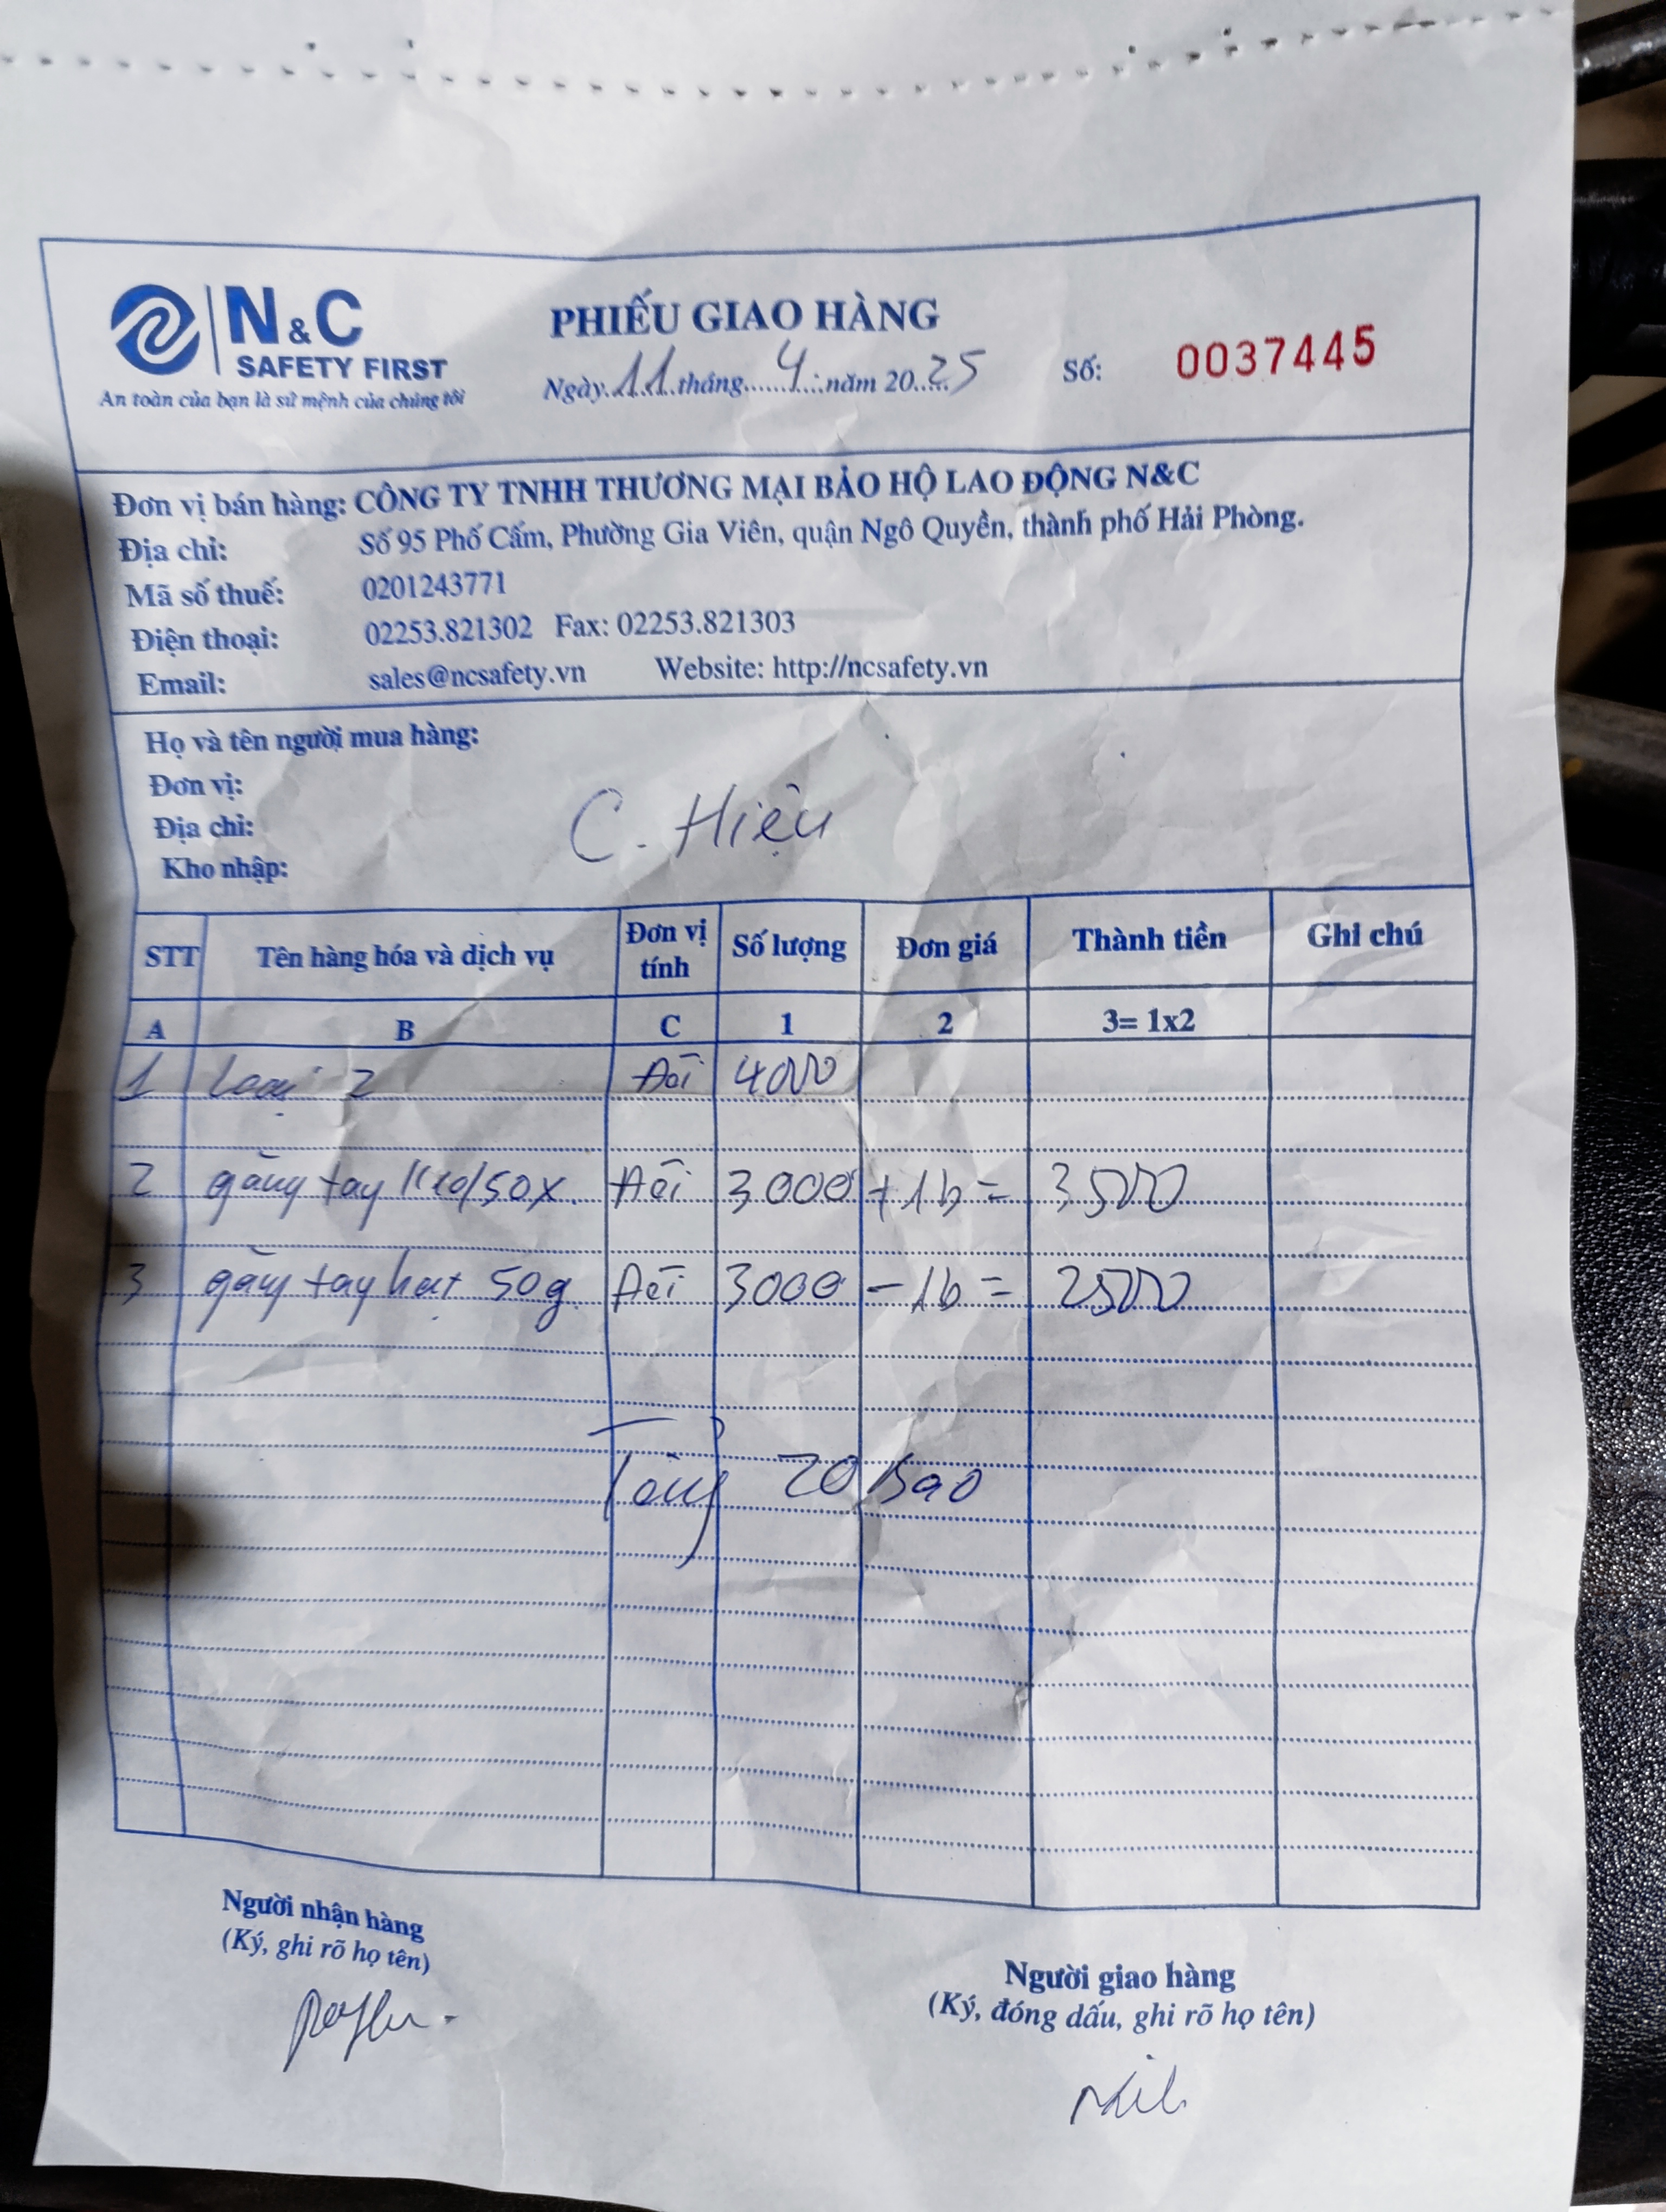 N&C
SAFETY FIRST
An toàn của bạn là sứ mệnh của chúng tôi
PHIẾU GIAO HÀNG
Ngày 11 tháng 4 năm 2025
Số: 0037445
Đơn vị bán hàng: CÔNG TY TNHH THƯƠNG MẠI BẢO HỘ LAO ĐỘNG N&C
Địa chỉ: Số 95 Phố Cấm, Phường Gia Viên, quận Ngô Quyền, thành phố Hải Phòng.
Mã số thuế: 0201243771
Điện thoại: 02253.821302 Fax: 02253.821303
Email: sales@ncsafety.vn Website: http://ncsafety.vn
Họ và tên người mua hàng:
Đơn vị:
Địa chỉ:
C. Hiệu
Kho nhập:
STT Tên hàng hóa và dịch vụ Đơn vị tính Số lượng Đơn giá Thành tiền Ghi chú
A B C 1 2 3= 1x2
1 Loại 2 Đôi 4000
2 găng tay /50X Đôi 3000 + 1b = 3500
3 găng tay hạt 50g Đôi 3000 - 1b = 2500
Tổng 20 Bao
Người nhận hàng
(Ký, ghi rõ họ tên)
Người giao hàng
(Ký, đóng dấu, ghi rõ họ tên)